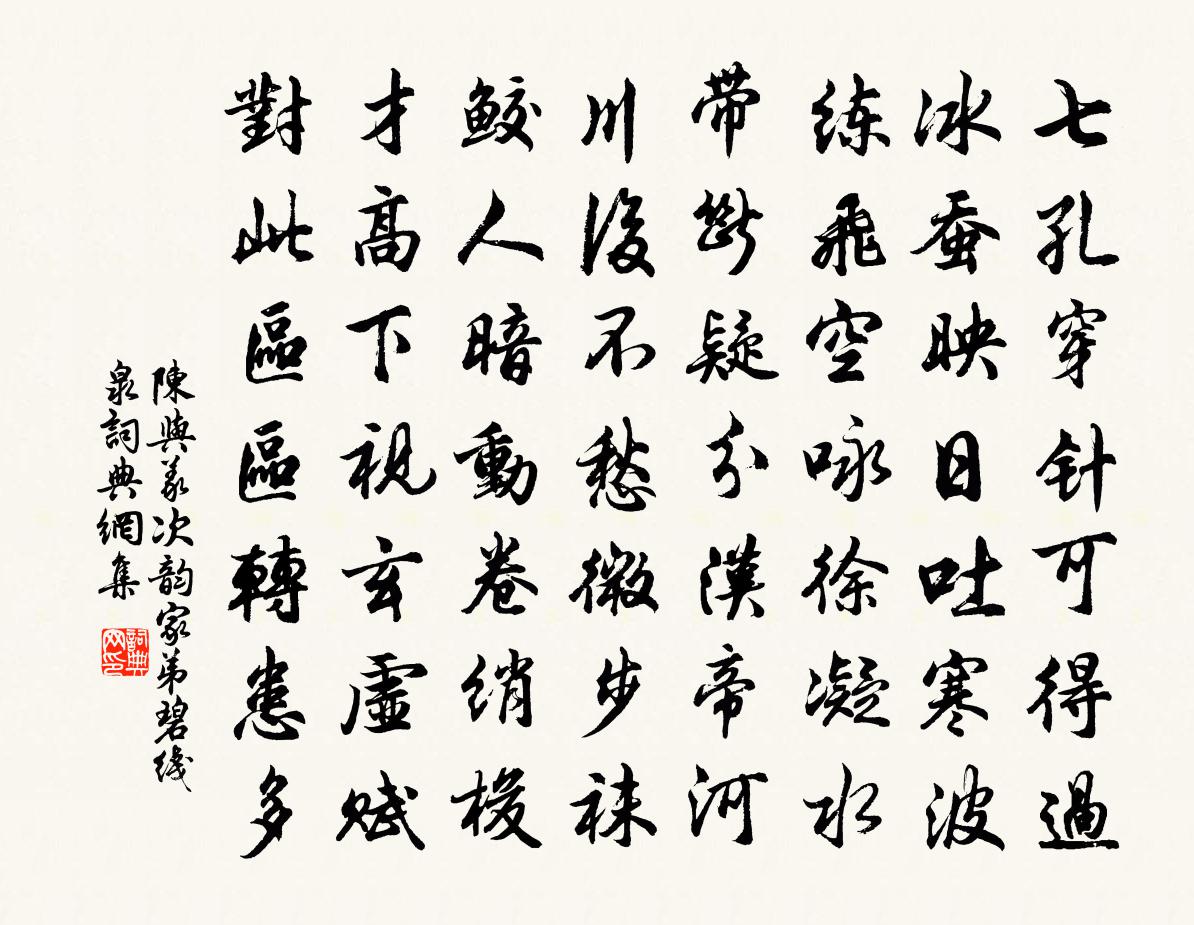 七孔穿针可得過
冰蚕映日吐寒波
练飛空咏徐凝水
带斷疑分漢帝河
川後不愁微步袜
鲛人暗動卷绡梭
才高下視玄虛賦
對此區區轉患多
陳與義次韵家弟碧线
泉詞典網集
詞典网印